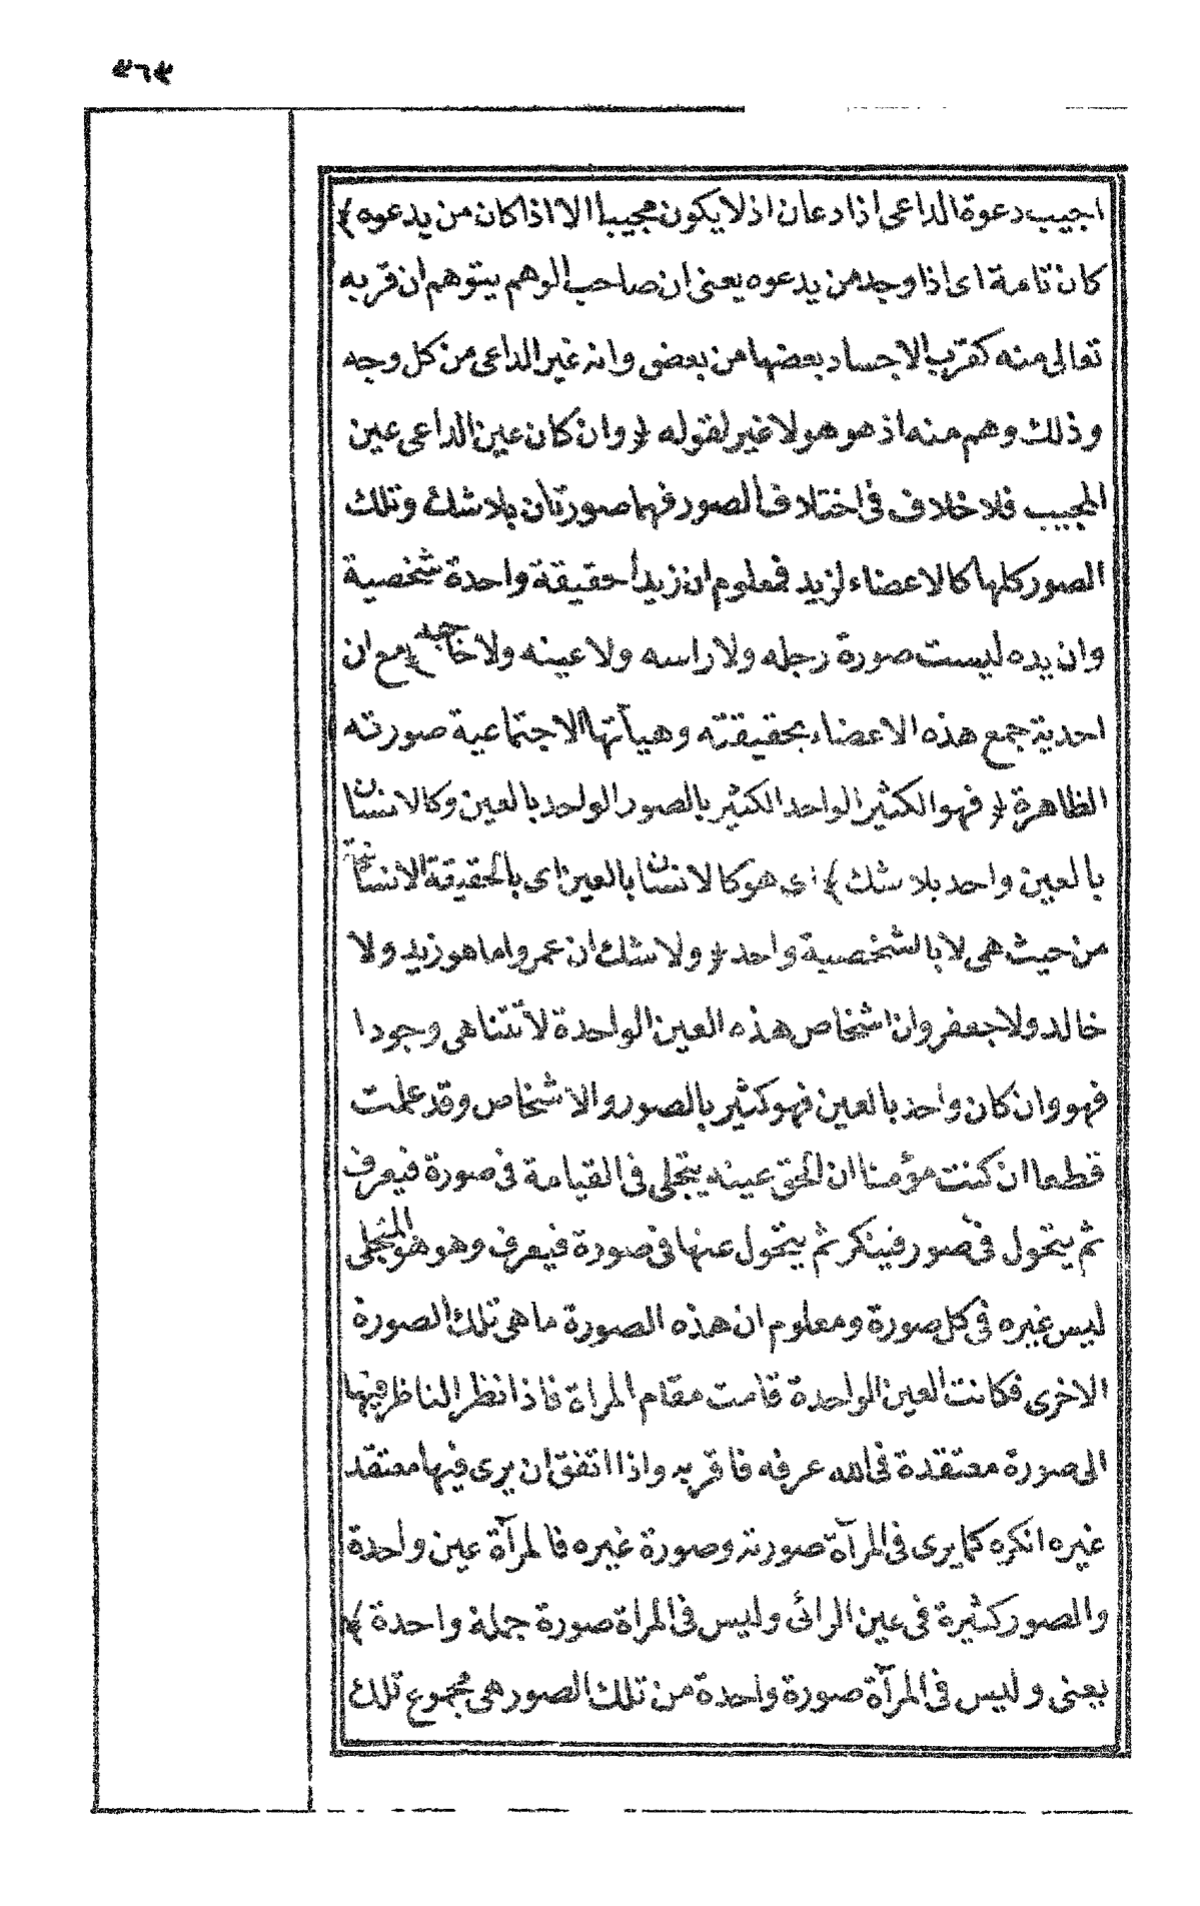 ٤٦٤
اجيب دعوة الداعى اذا دعان اذ لا يكون مجيبا الا اذا كان من يدعوه ﴾
كان تامة اى اذا وجد من يدعوه يعنى ان صاحب الوهم يتوهم ان قربه
تعالى منه كقرب الاجساد بعضها من بعض وانه غير الداعى من كل وجه
وذلك وهم منه اذ هو هو لا غير لقوله ﴿ وان كان عين الداعى عين
المجيب فلا خلاف فى اختلاف الصور فهما صورتان بلا شك وتلك
الصور كلها كالاعضاء لزيد فمعلوم ان زيدا حقيقة واحدة شخصية
وان يده ليست صورة رجله ولا راسه ولا عينه ولا حاجبه ﴾ مع ان
احدية جمع هذه الاعضاء بحقيقته وهيآتها الاجتماعية صورته
الظاهرة ﴿ فهو الكثير الواحد الكثير بالصور الواحد بالعين وكالانسان
بالعين واحد بلا شك ﴾ اى هو كالانسان بالعين اى بالحقيقة الانسانية
من حيث هى لا بالشخصية واحد ﴿ ولا شك ان عمروا ما هو زيد ولا
خالد ولا جعفر وان اشخاص هذه العين الواحدة لا تتناهى وجودا
فهو وان كان واحد بالعين فهو كثير بالصور والاشخاص وقد علمت
قطعا ان كنت مؤمنا ان الحق عينه يتجلى فى القيامة فى صورة فيعرف
ثم يتحول فى صور فينكر ثم يتحول عنها فى صورة فيعرف وهو هو المتجلى
ليس غيره فى كل صورة ومعلوم ان هذه الصورة ما هى تلك الصورة
الاخرى فكانت العين الواحدة قامت مقام المراة فاذا نظر الناظر فيها
الى صورة معتقدة فى الله عرفه فاقر به واذا اتفق ان يرى فيها معتقد
غيره انكره كما يرى فى المرآة صورته وصورة غيره فالمرآة عين واحدة
والصور كثيرة فى عين الرائى وليس فى المراة صورة جملة واحدة ﴾
يعنى وليس فى المرآة صورة واحدة من تلك الصور هى مجموع تلك